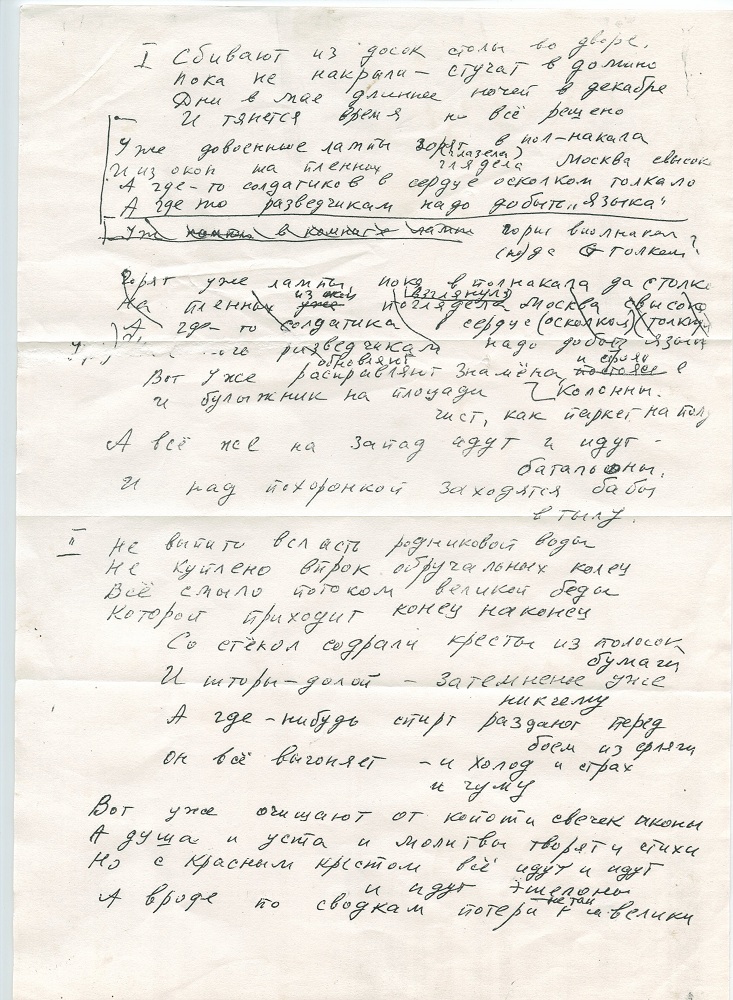 I Сбивают из досок столы во дворе,
Пока не накрыли — стучат в домино
Дни в мае длиннее ночей в декабре
И тянется время но всё решено
Уже довоенные лампы горят в пол-накала
(глазела)
И из окон на пленных глядела Москва свысок
А где-то солдатиков в сердце осколком толкало
А где то разведчикам надо добыть "Языка"
Уж в комнате лампы горят вполнакал
Горят уже лампы пока в полнакала да столке
из окон (взглянула)
На пленных уже поглядела Москва свысока
А где-то солдатика в сердце (осколком) (толкни
разведчикам надо добыть языка
обновляют и строят
Вот уже расправляют знамёна,
и булыжник на площади Колонны.
чист, как паркет на полу
А всё же на Запад идут и идут -
батальоны,
И над похоронкой заходятся бабы
в тылу.
II Не выпито всласть родниковой воды
Не куплено впрок обручальных колец
Всё смыло потоком великой беды
Которой приходит конец наконец
Со стёкол содрали кресты из полосок
бумаги
И шторы — долой — Затемненье уже
ни к чему
А где-нибудь спирт раздают перед
боем из фляги
он всё выгоняет — и холод и страх
и чуму
Вот уже очищают от копоти свечек иконы
А душа и уста и молитвы творят и стихи
Но с красным крестом всё идут и идут
и идут Эшелоны
не так
А вроде по сводкам потери и велики